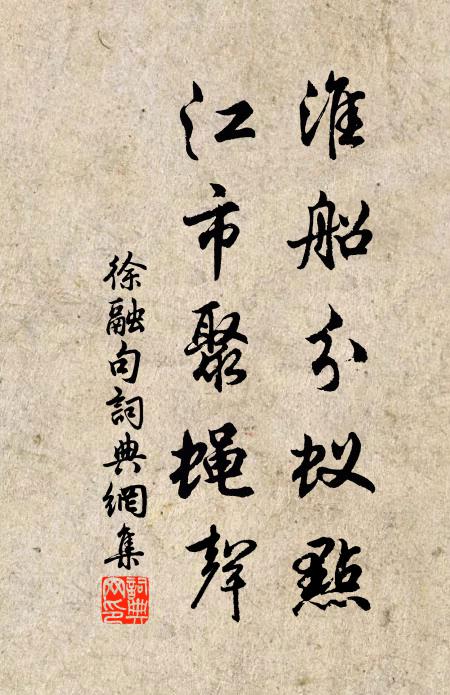 淮船分蚁點
江市聚蝇聲
徐融句詞典網集
詞典